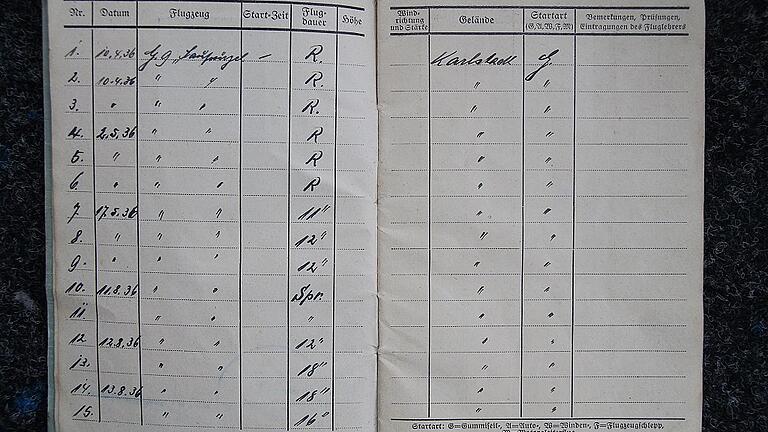 Nr. Datum Flugzeug Start-Zeit Flug-dauer Höhe Wind-richtung und Stärke Gelände Startart (G,A,W,F,M) Bemerkungen, Prüfungen, Eintragungen des Fluglehrers
1. 10.4.36 G.9 – R. Karlstadt G.
2. 10.4.36 " " R. " "
3. " " " R. " "
4. 2.5.36 " " R " "
5. " " " R " "
6. " " " R " "
7. 17.5.36 " " 11" " "
8. " " " 12" " "
9. " " " 12" " "
10. 11.8.36 " " Spr. " "
11. " " " " "
12. 12.8.36 " " 12" " "
13. " " 18" " "
14. 13.8.36 " " 18" " "
15. " " 16" " "
Startart: G=Gummiseil-, A=Auto-, W=Winden-, F=Flugzeugschlepp,